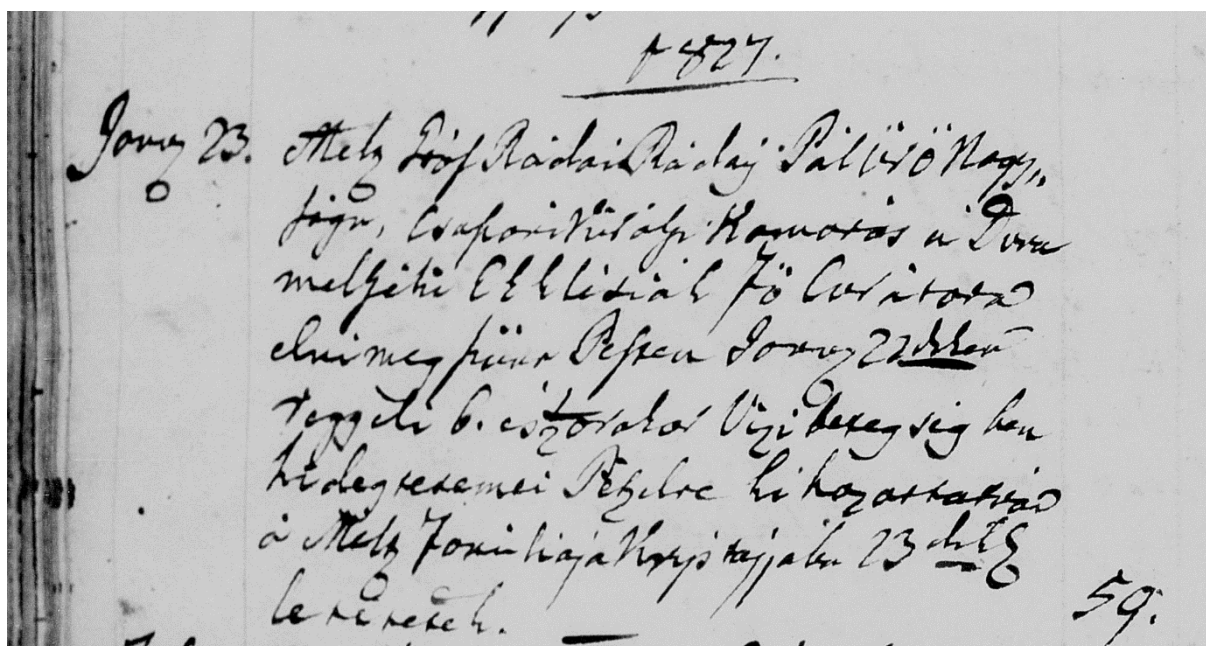 1827.
Janry 23. Mélt Gróf Rádai Ráday Pál Úr ő Nagy„
sága, Csaszari Királyi Kamarás a Duna
mellyéki Ekklésiák Fő Curátora
élni meg szünt Pesten Janry 22dikén
reggeli 6. és órakor Vizi betegségben
hideg tetemei Pétzelre ki hozattatván
a Mélt Familiája Kriptájába 23dik
le tétettek. 59.